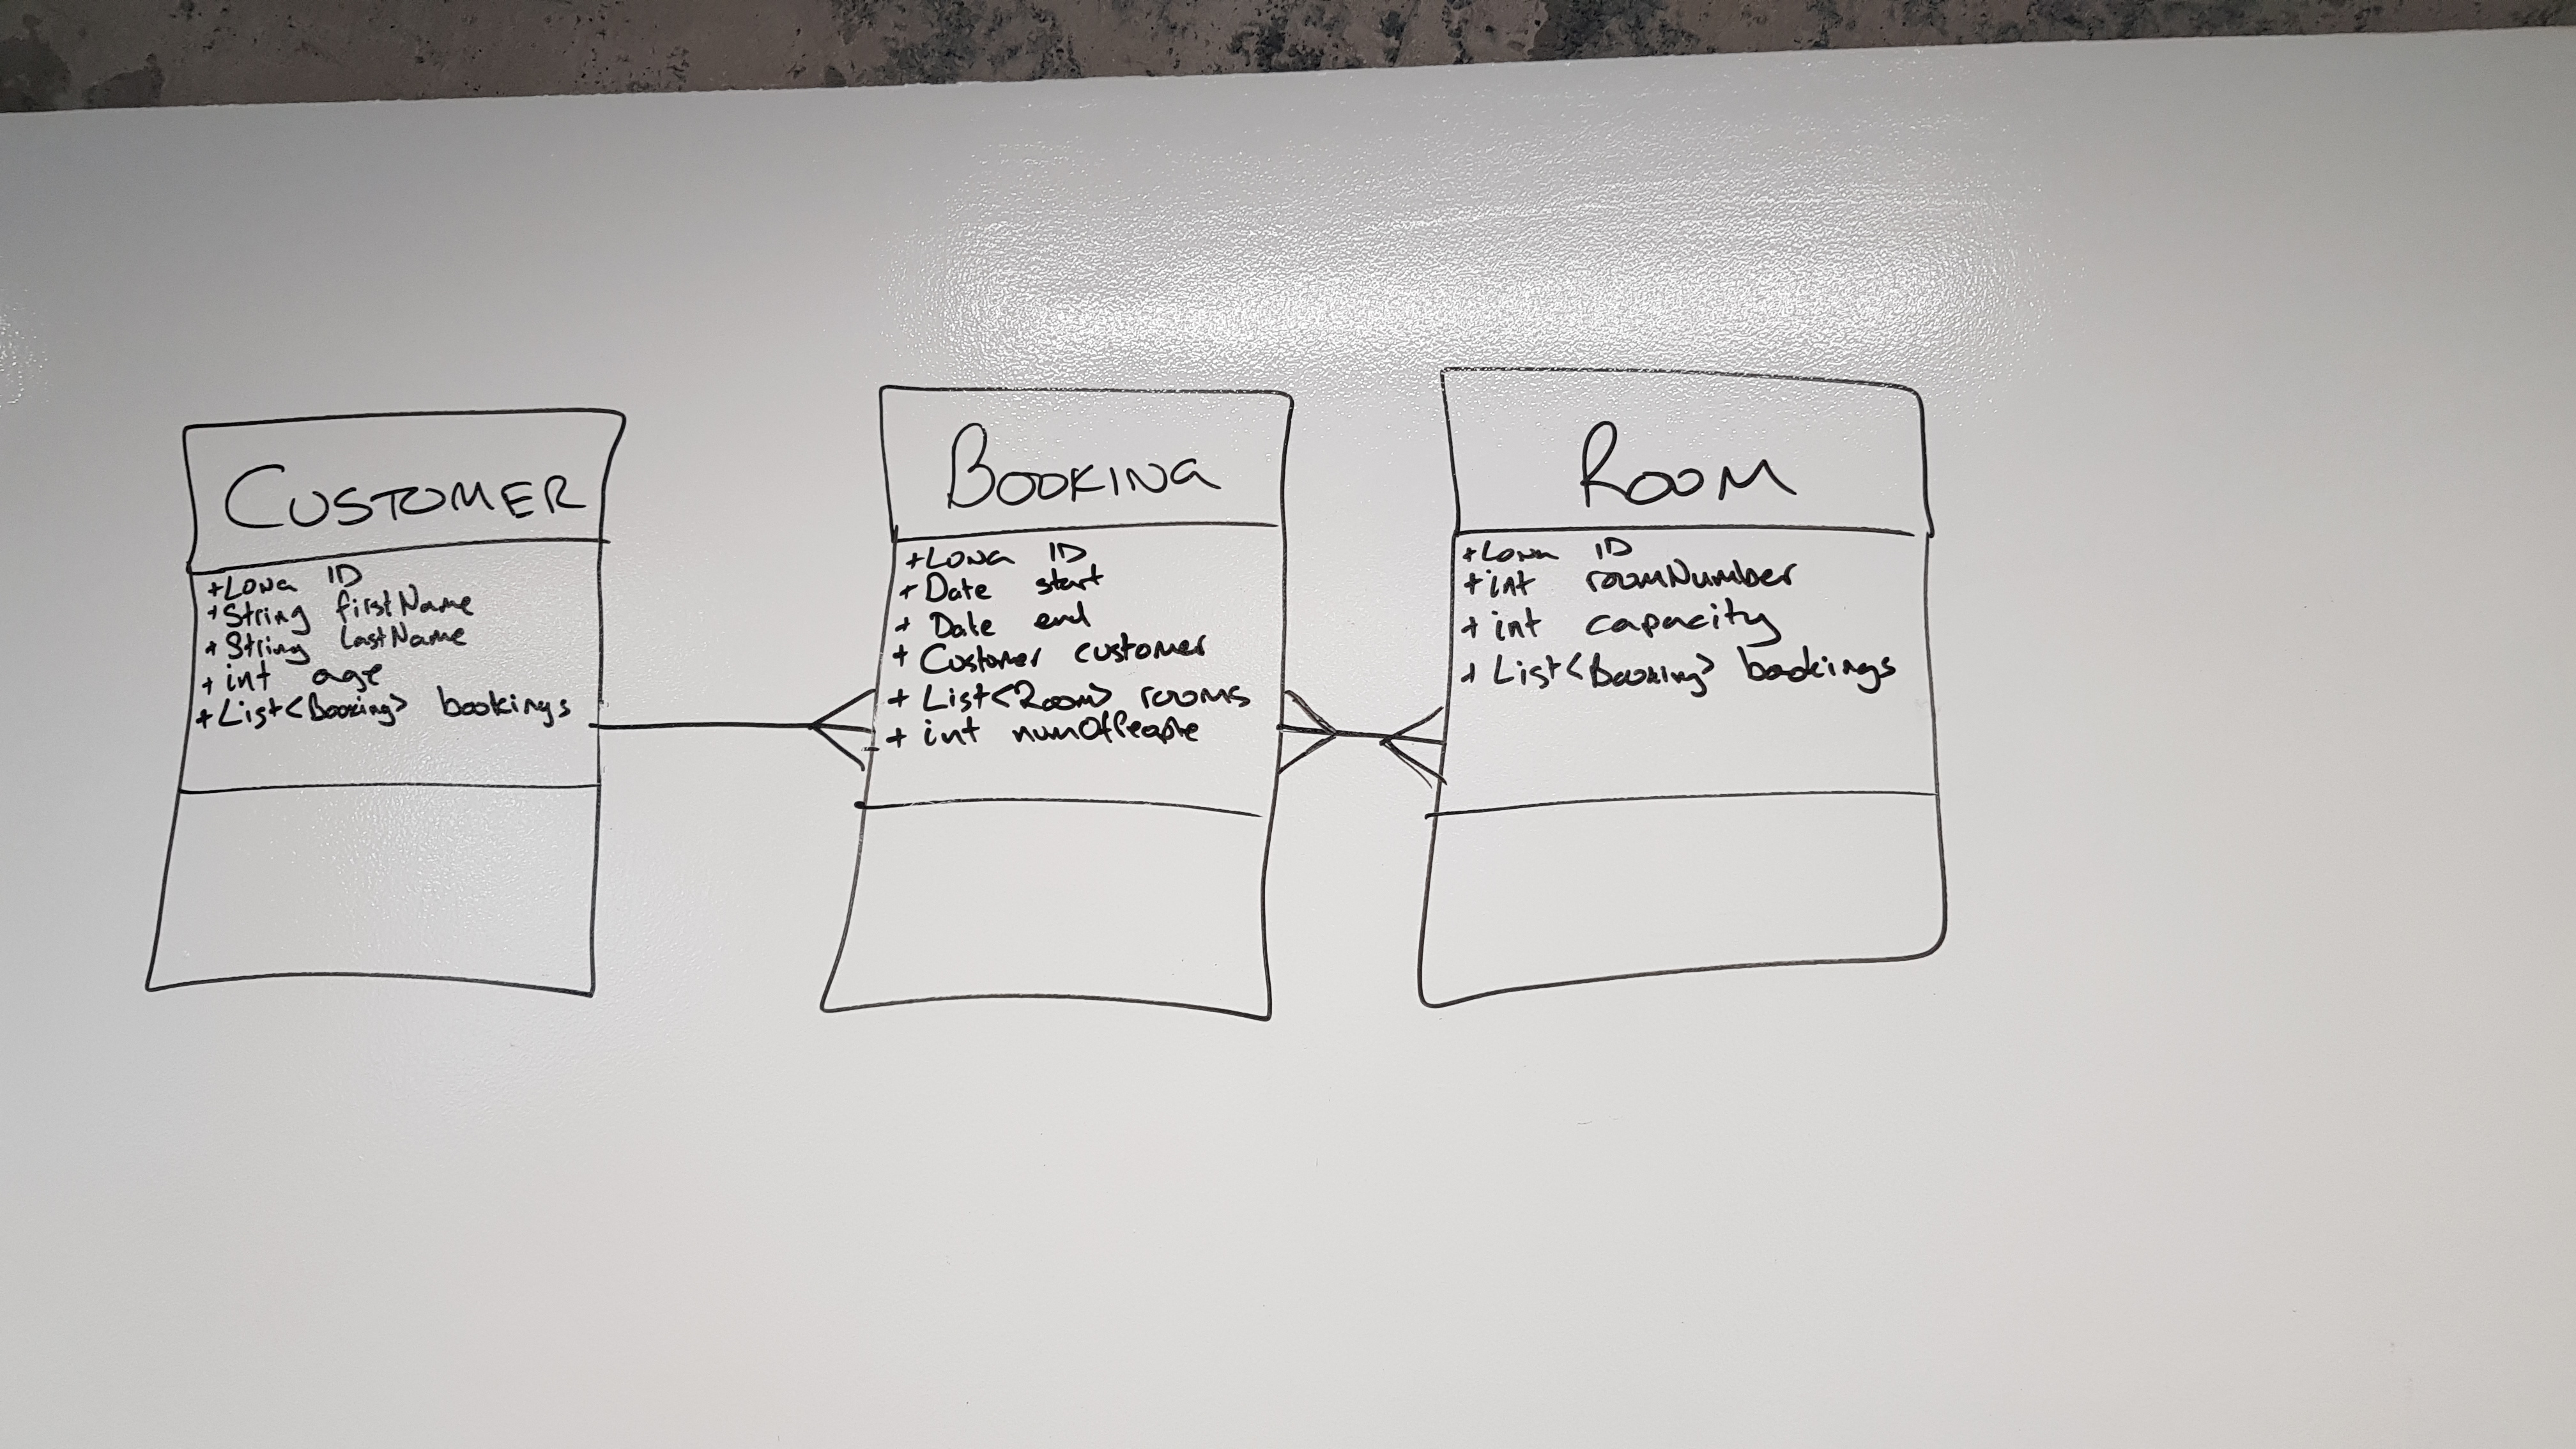 CUSTOMER
+Long ID
+String firstName
+String lastName
+int age
+List<Booking> bookings
BOOKING
+Long ID
+Date start
+ Date end
+ Customer customer
+ List<Room> rooms
+ int numOfPeople
ROOM
+Long ID
+int roomNumber
+ int capacity
+ List<Booking> bookings